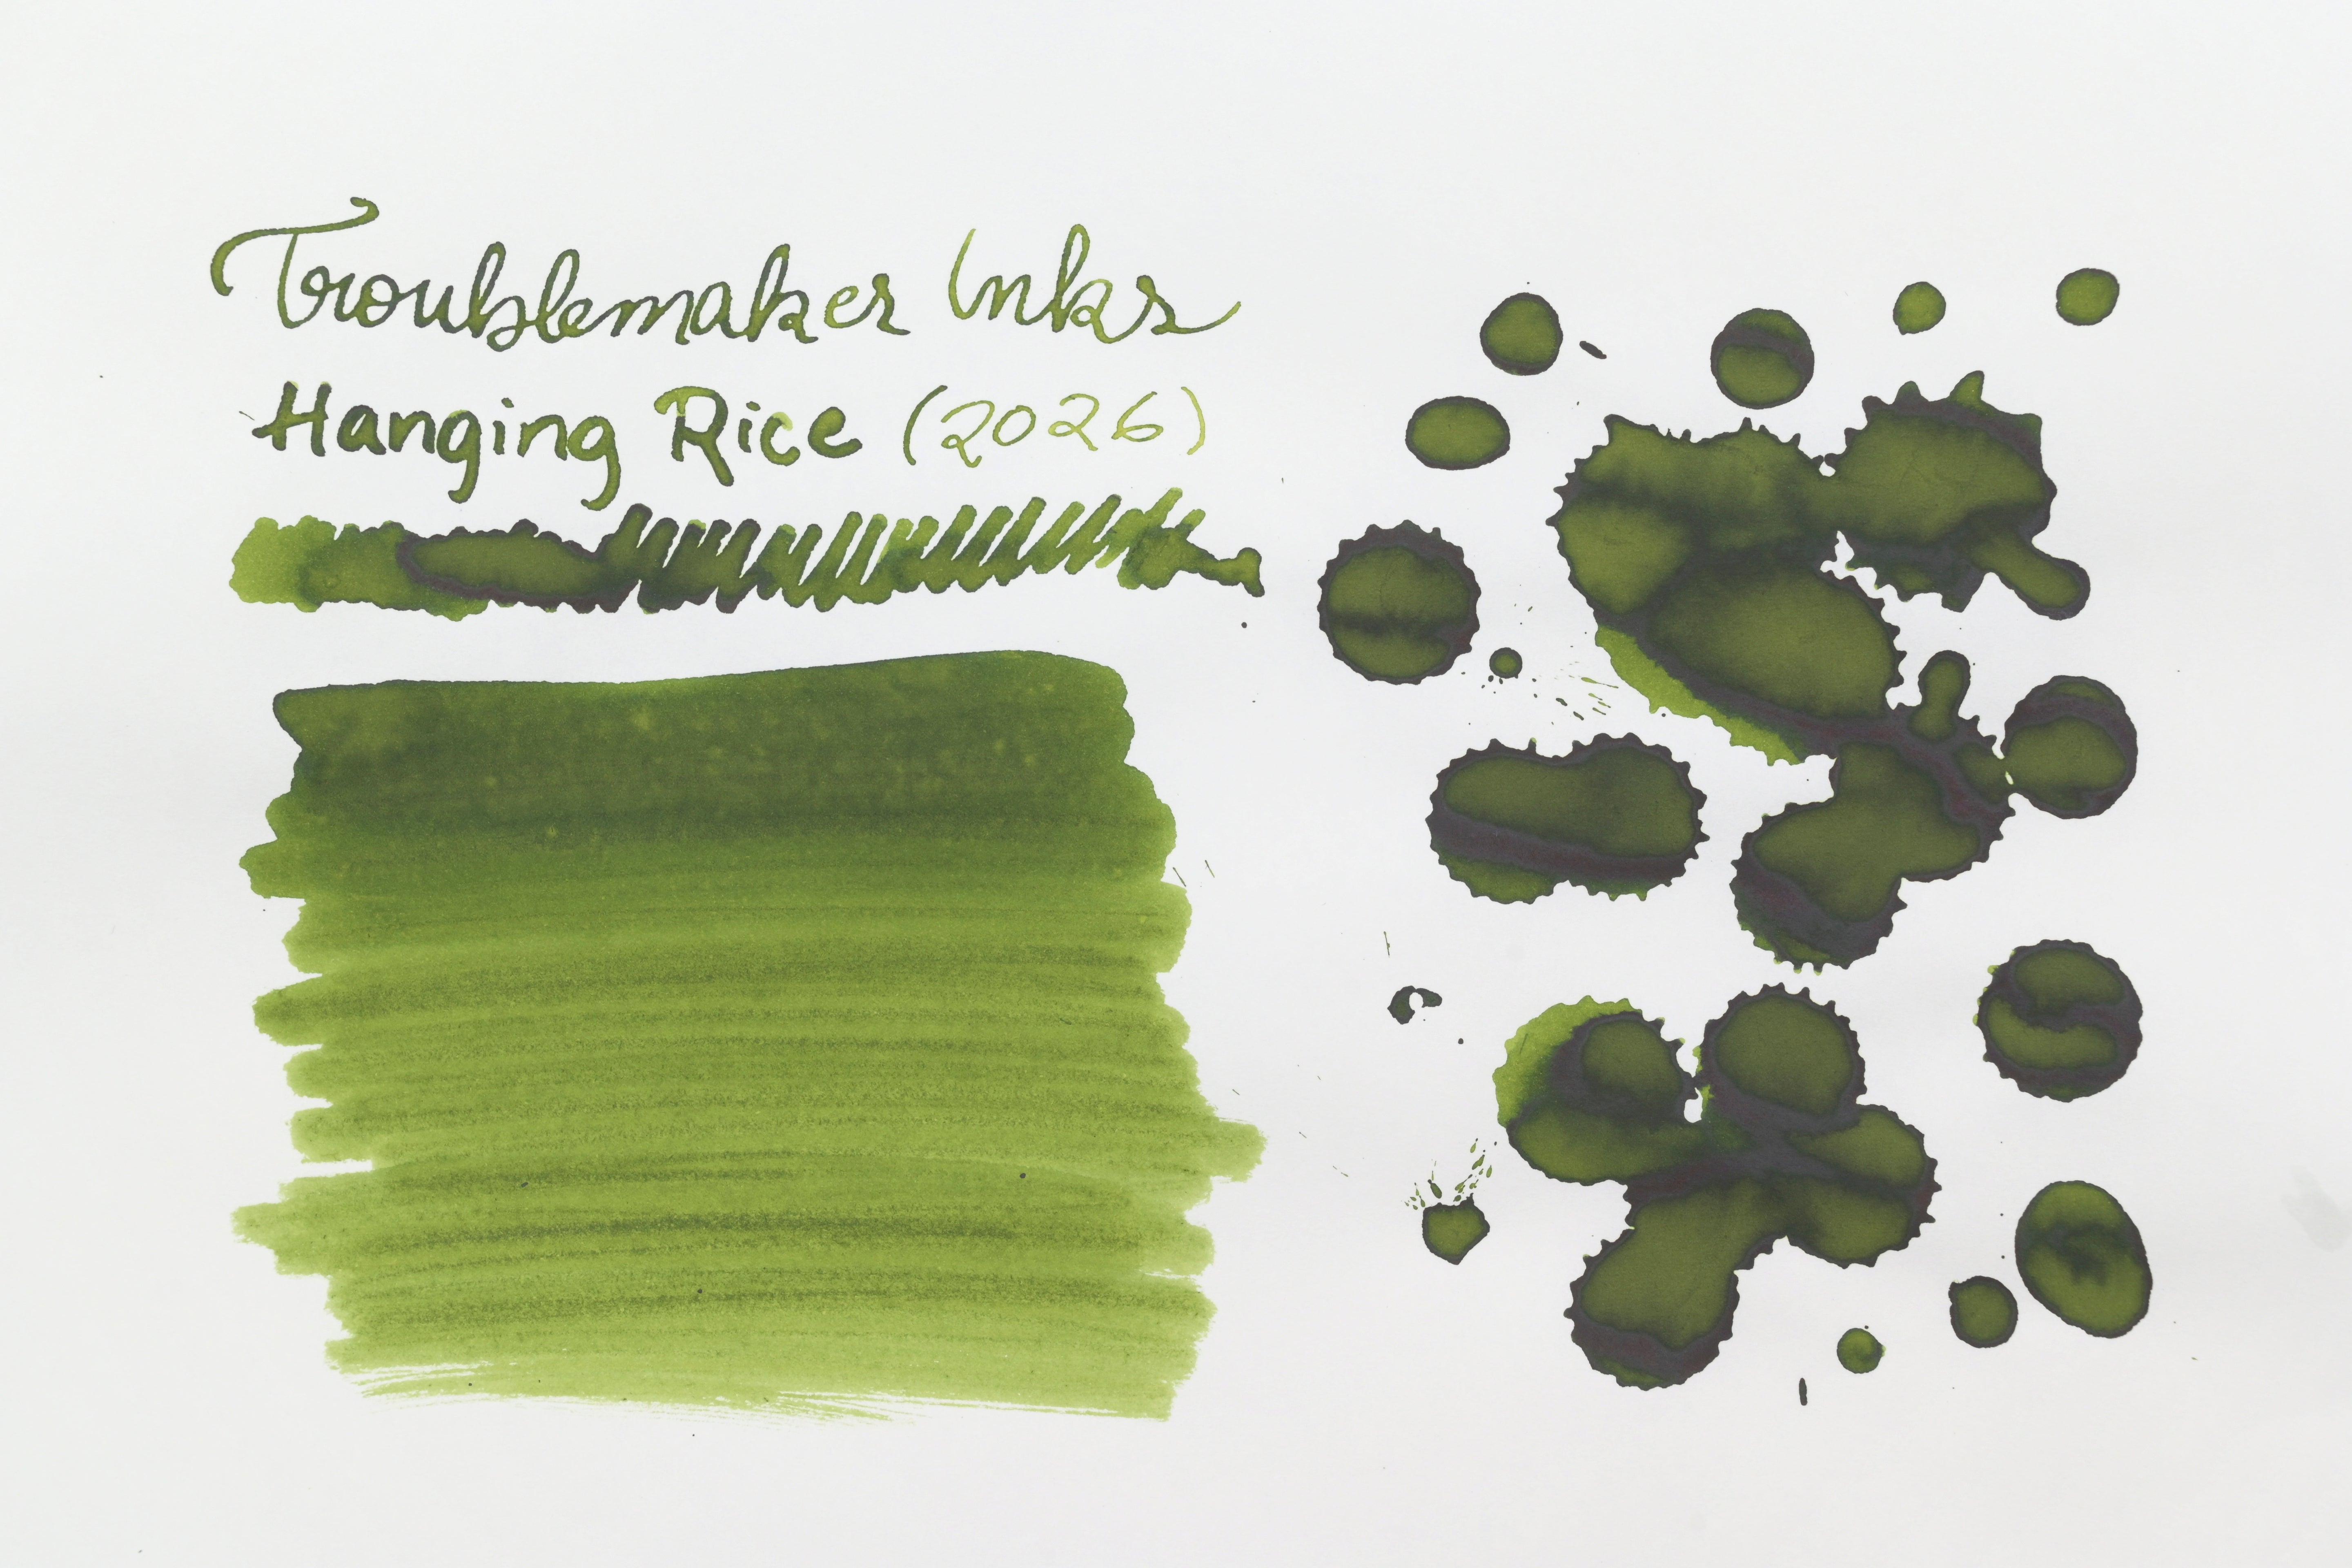 Troublemaker Inks
Hanging Rice (2026)